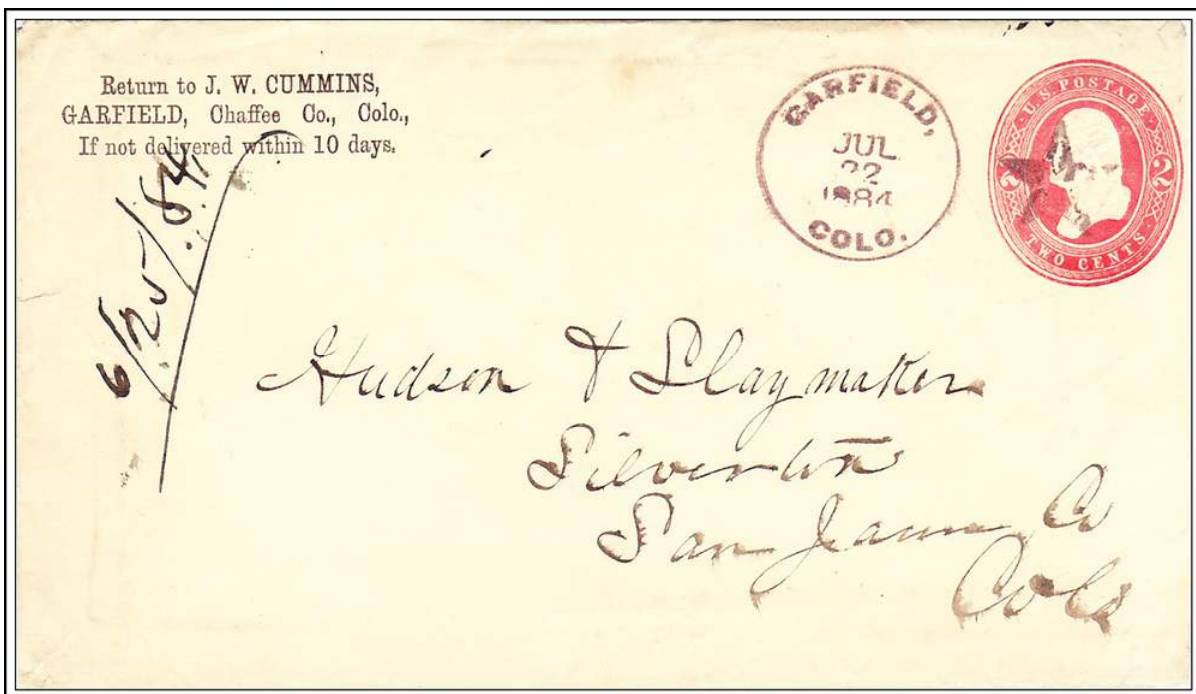 Return to J. W. CUMMINS,
GARFIELD, Chaffee Co., Colo.,
If not delivered within 10 days.
GARFIELD,
JUL
22
1884
COLO.
U.S. POSTAGE
2 2
TWO CENTS
6/25/.84
Hudson & Slaymaker
Silverton
San Juan Co
Colo